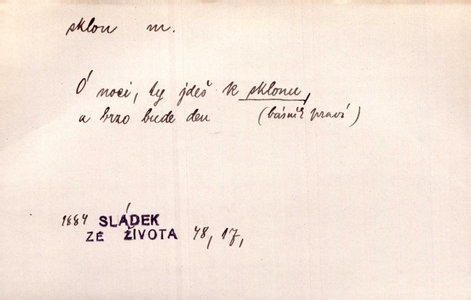 sklon m.
Ó noci, ty jdeš k sklonu,
a brzo bude den (básník praví)
1884 SLÁDEK
ZE ŽIVOTA 48, 17,